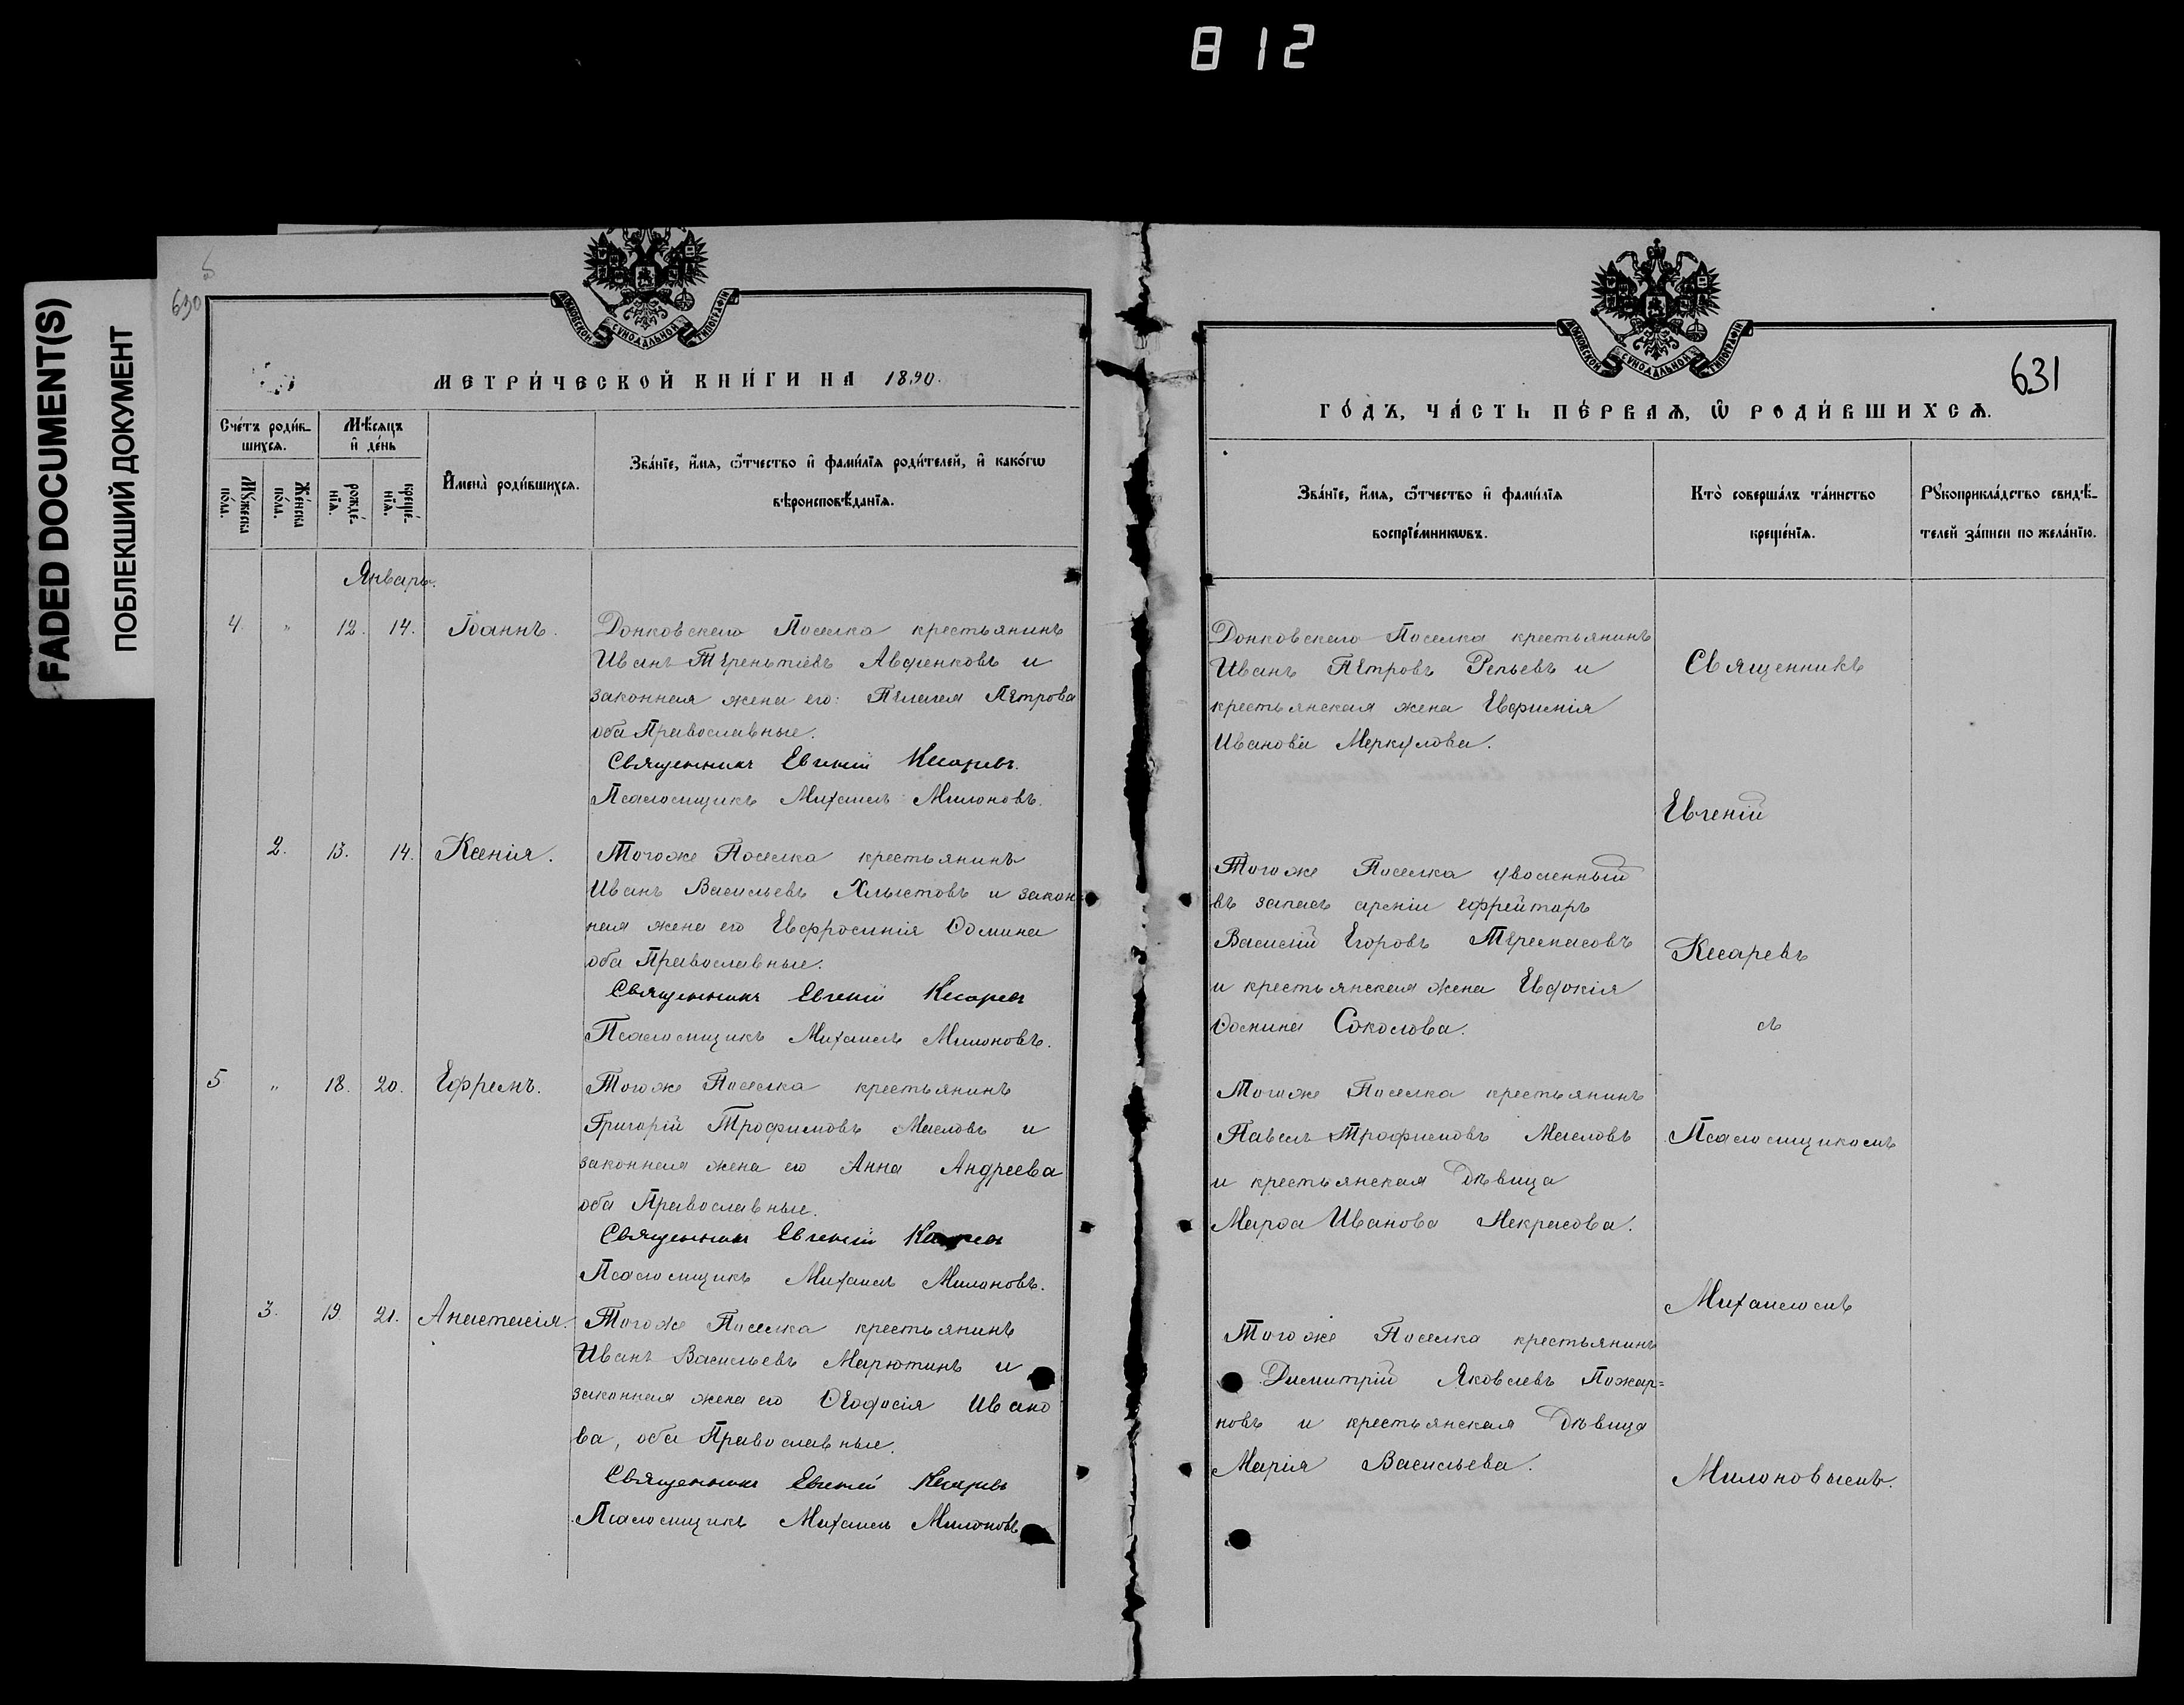 812
FADED DOCUMENT(S)
ПОБЛЕКШИЙ ДОКУМЕНТ
5
630
МОСКОВСКОЙ СѴНОДАЛЬНОЙ ТИПОГРАФІИ
МЕТРИ́ЧЕСКОЙ КНИ́ГИ НА 1890.
Сче́тъ роди́в-
шихся.
Мѣ́сяцъ
и҆ де́нь
Мꙋ́жеска
по́ла.
Же́нска
по́ла.
рожде́-
нїя.
креще́-
нїя.
И҆мена̀ роди́вшихся.
Зва́нїе, и҆́мя, ѻ҆́тчество и҆ фами́лїя роди́телей, и҆ како́гѡ
вѣроисповѣ́данїя.
Январь.
4. " 12. 14. Іоаннъ.
Донковскаго Поселка крестьянинъ
Иванъ Терентіевъ Авдѣенковъ и
законная жена его: Пелагея Петрова
оба Православные.
Священникъ Евгеній Кесаревъ.
Псаломщикъ Михаилъ Милоновъ.
2. 13. 14. Ксенія.
Тогоже Поселка крестьянинъ
Иванъ Васильевъ Хлыстовъ и закон
ная жена его Евфросинія Ѳомина
оба Православные.
Священникъ Евгеній Кесаревъ
Псаломщикъ Михаилъ Милоновъ.
5 " 18. 20. Ефремъ.
Тогоже Поселка крестьянинъ
Григорій Трофимовъ Масловъ и
законная жена его Анна Андреева
оба Православные.
Священникъ Евгеній Кесаревъ
Псаломщикъ Михаилъ Милоновъ.
3. 19. 21. Анастасія.
Тогоже Поселка крестьянинъ
Иванъ Васильевъ Марютинъ и
законная жена его Ѳеодосія Ивано
ва, оба Православные.
Священникъ Евгеній Кесаревъ
Псаломщикъ Михаилъ Милоновъ
МОСКОВСКОЙ СѴНОДАЛЬНОЙ ТИПОГРАФІИ
631
ГО́ДЪ, ЧА́СТЬ ПЕ́РВАЯ, Ѡ҆ РОДИ́ВШИХСЯ.
Зва́нїе, и҆́мя, ѻ҆́тчество и҆ фами́лїя
воспрїе́мникѡвъ.
Кто̀ соверша́лъ та́инство
креще́нїя.
Рꙋкоприкла́дство свидѣ́-
телей за́писи по жела́нїю.
Донковскаго Поселка крестьянинъ
Иванъ Петровъ Репьевъ и
крестьянская жена Евфимія
Иванова Меркулова.
Тогоже Поселка уволенный
въ запасъ арміи ефрейторъ
Василій Егоровъ
и крестьянская жена Евдокія
Ѳомина Соколова.
Тогоже Поселка крестьянинъ
Павелъ Трофимовъ Масловъ
и крестьянская дѣвица
Марѳа Иванова Некрасова.
Тогоже Поселка крестьянинъ
Димитрій Яковлевъ Пожар=
новъ и крестьянская дѣвица
Марія Васильева.
Священникъ
Евгеній
Кесаревъ
съ
Псаломщикомъ
Михаиломъ
Милоновымъ.